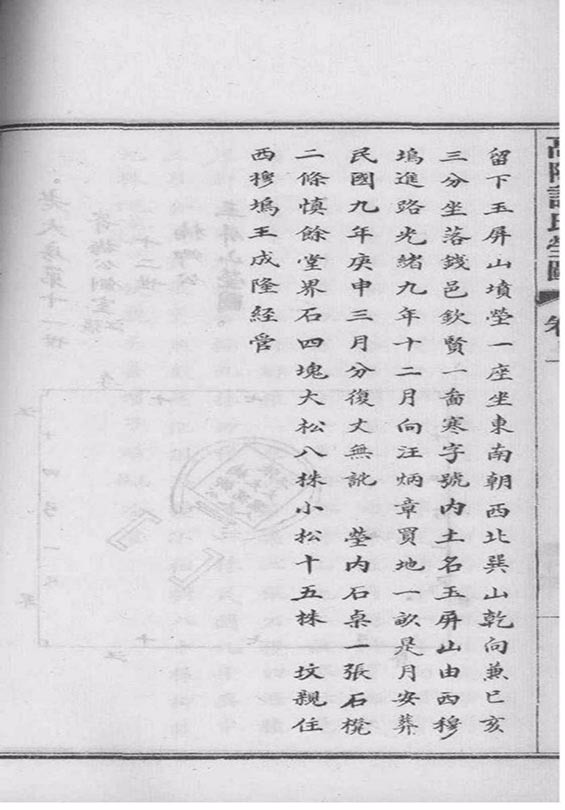 高陽許氏塋圖 卷上
留下玉屏山墳塋一座坐東南朝西北巽山乾向兼巳亥
三分坐落錢邑欽賢一啚寒字號內土名玉屏山由西穆
塢進路光緒九年十二月向汪炳章買地一畝是月安葬
民國九年庚申三月分復丈無訛 塋內石桌一張石櫈
二條慎餘堂界石四塊大松八株小松十五株 坟親住
西穆塢王成隆經管